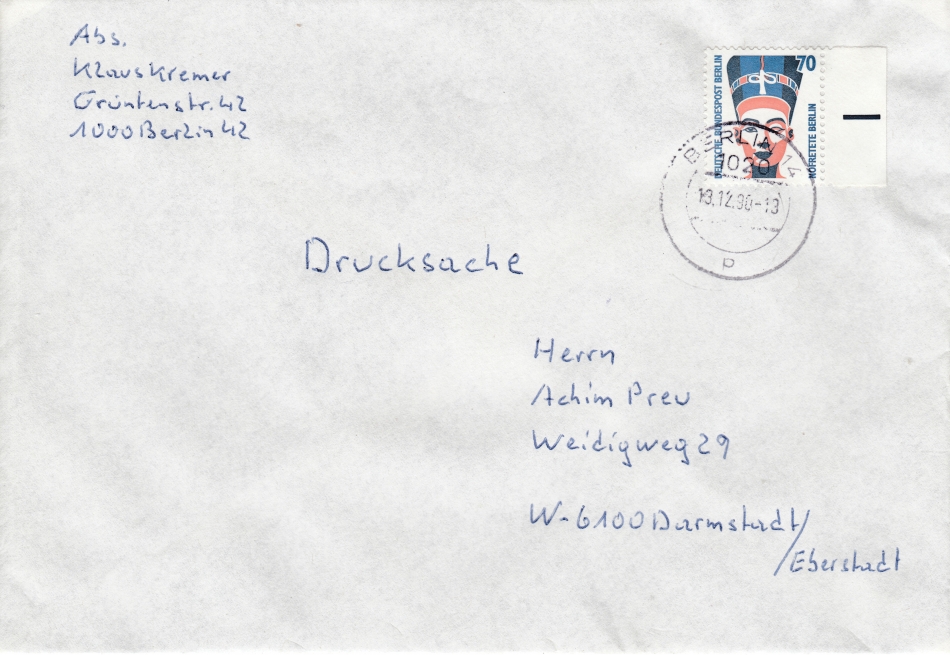 Abs.
Klaus Kremer
Grüntenstr. 42
1000 Berlin 42
DEUTSCHE BUNDESPOST BERLIN
70
NOFRETETE BERLIN
BERLIN 12
1020
13.12.90-13
p
Drucksache
Herrn
Achim Preu
Weidigweg 29
W-6100 Darmstadt/
/Eberstadt